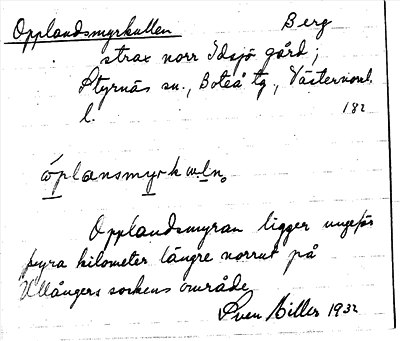 Opplandsmyrkullen Berg
strax norr Idsjö gård;
Styrnäs sn., Boteå tg., Västernorrl.
l. 182
Opplandsmyran ligger ungefär
fyra kilometer längre norrut på
Ullångers sockens område
Sven Biller 1932